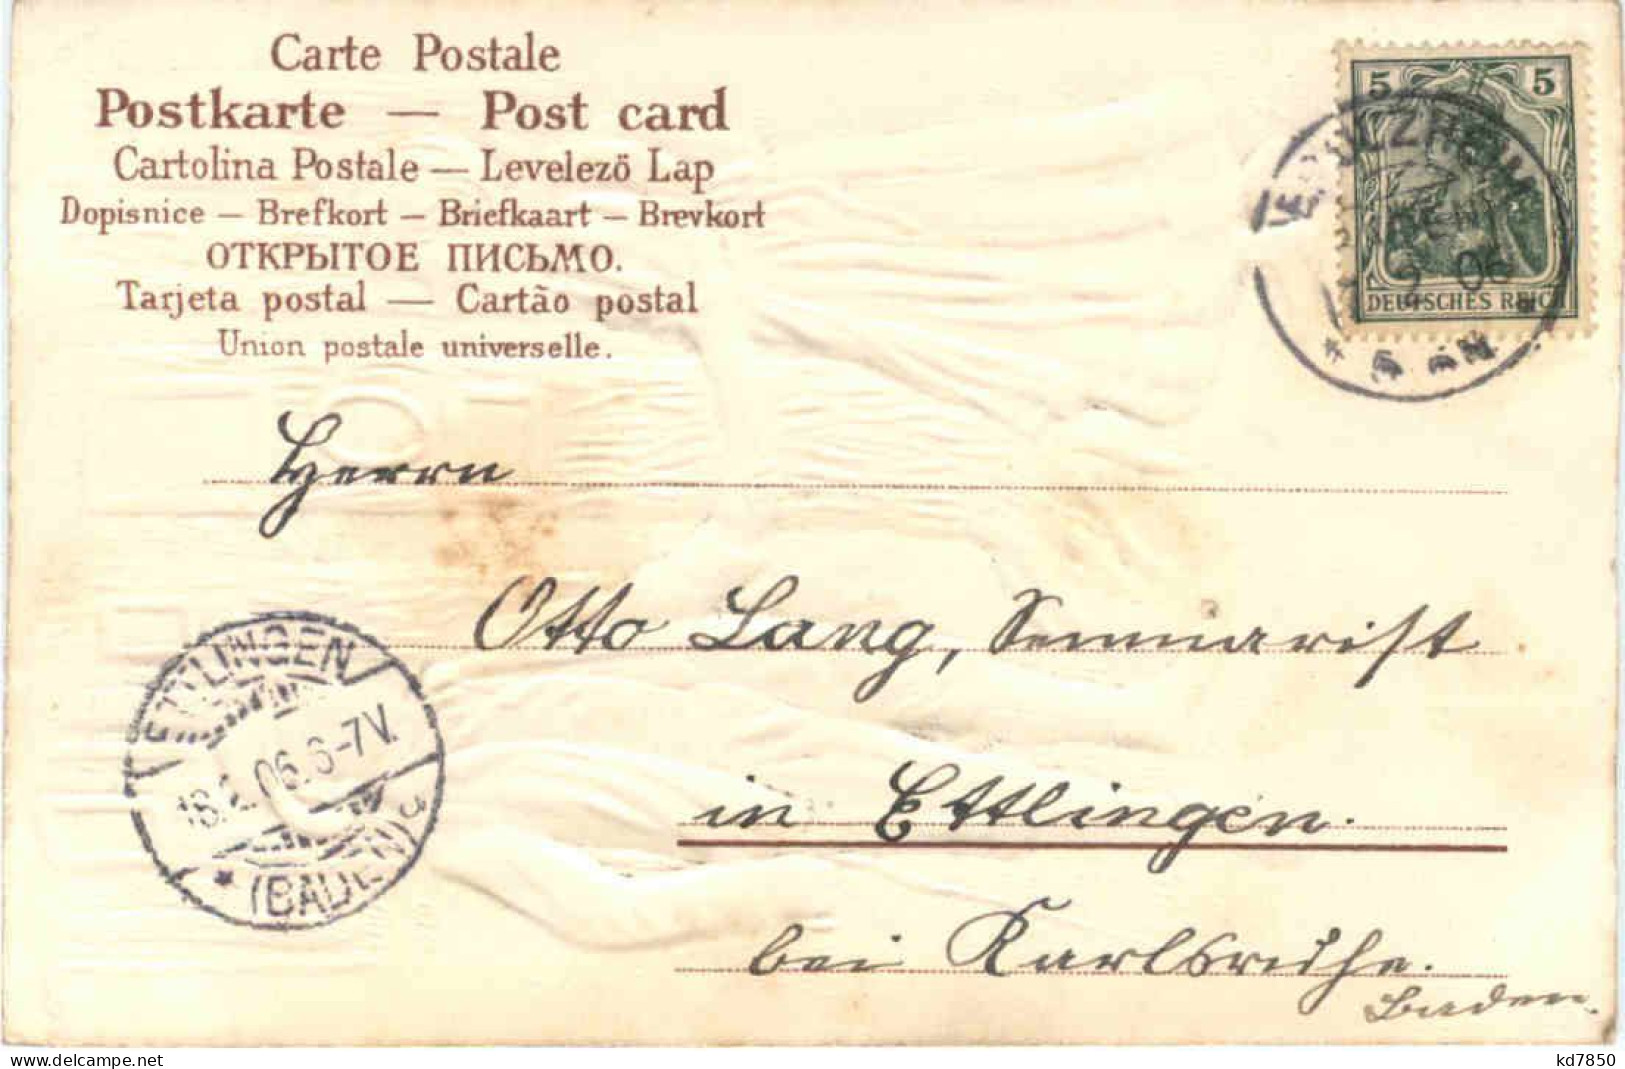 Carte Postale
Postkarte — Post card
Cartolina Postale — Levelező Lap
Dopisnice — Brefkort — Briefkaart — Brevkort
ОТКРЫТОЕ ПИСЬМО.
Tarjeta postal — Cartão postal
Union postale universelle.
5 5
DEUTSCHES REICH
06
* 5 6N
Herrn
Otto Lang, Seminarist
in Ettlingen.
bei Karlsruhe.
Baden.
ETTLINGEN
06. 6-7V.
* (BADEN) c
www.delcampe.net
kd7850